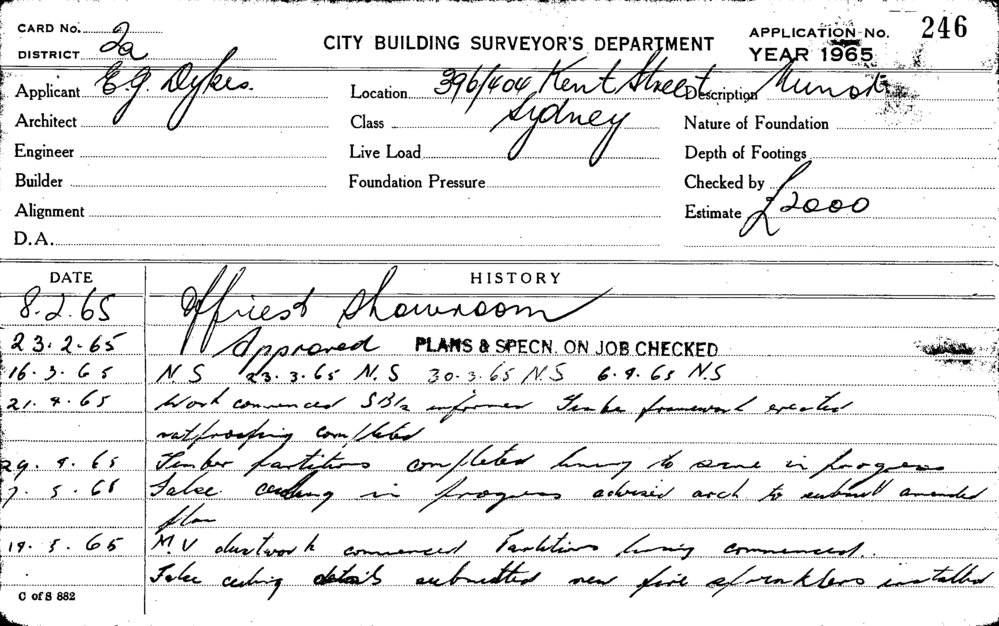 CARD No. 2a
DISTRICT
CITY BUILDING SURVEYOR'S DEPARTMENT
APPLICATION No. 246
YEAR 1965
Applicant E.G. Dykes.
Location 396/404 Kent Street
Sydney
Description
Architect
Class
Nature of Foundation
Engineer
Live Load
Depth of Footings
Builder
Foundation Pressure
Checked by
Alignment
Estimate £2000
D.A.
DATE HISTORY
8.2.65 Showroom
23.2.65 Approved PLANS & SPECN. ON JOB CHECKED
16.3.65 N.S 23.3.65 N.S 30.3.65 N.S 6.4.65 N.S
21.4.65 Work commenced informed framework erected
ratproofing completed
29.4.65 Timber partitions completed lining to same in progress
7.5.65 False ceiling in progress advised arch to submit amended
plan
19.5.65 M.V ductwork commenced Partitions lining commenced.
False ceiling details submitted new fire sprinklers installed
C of S 882